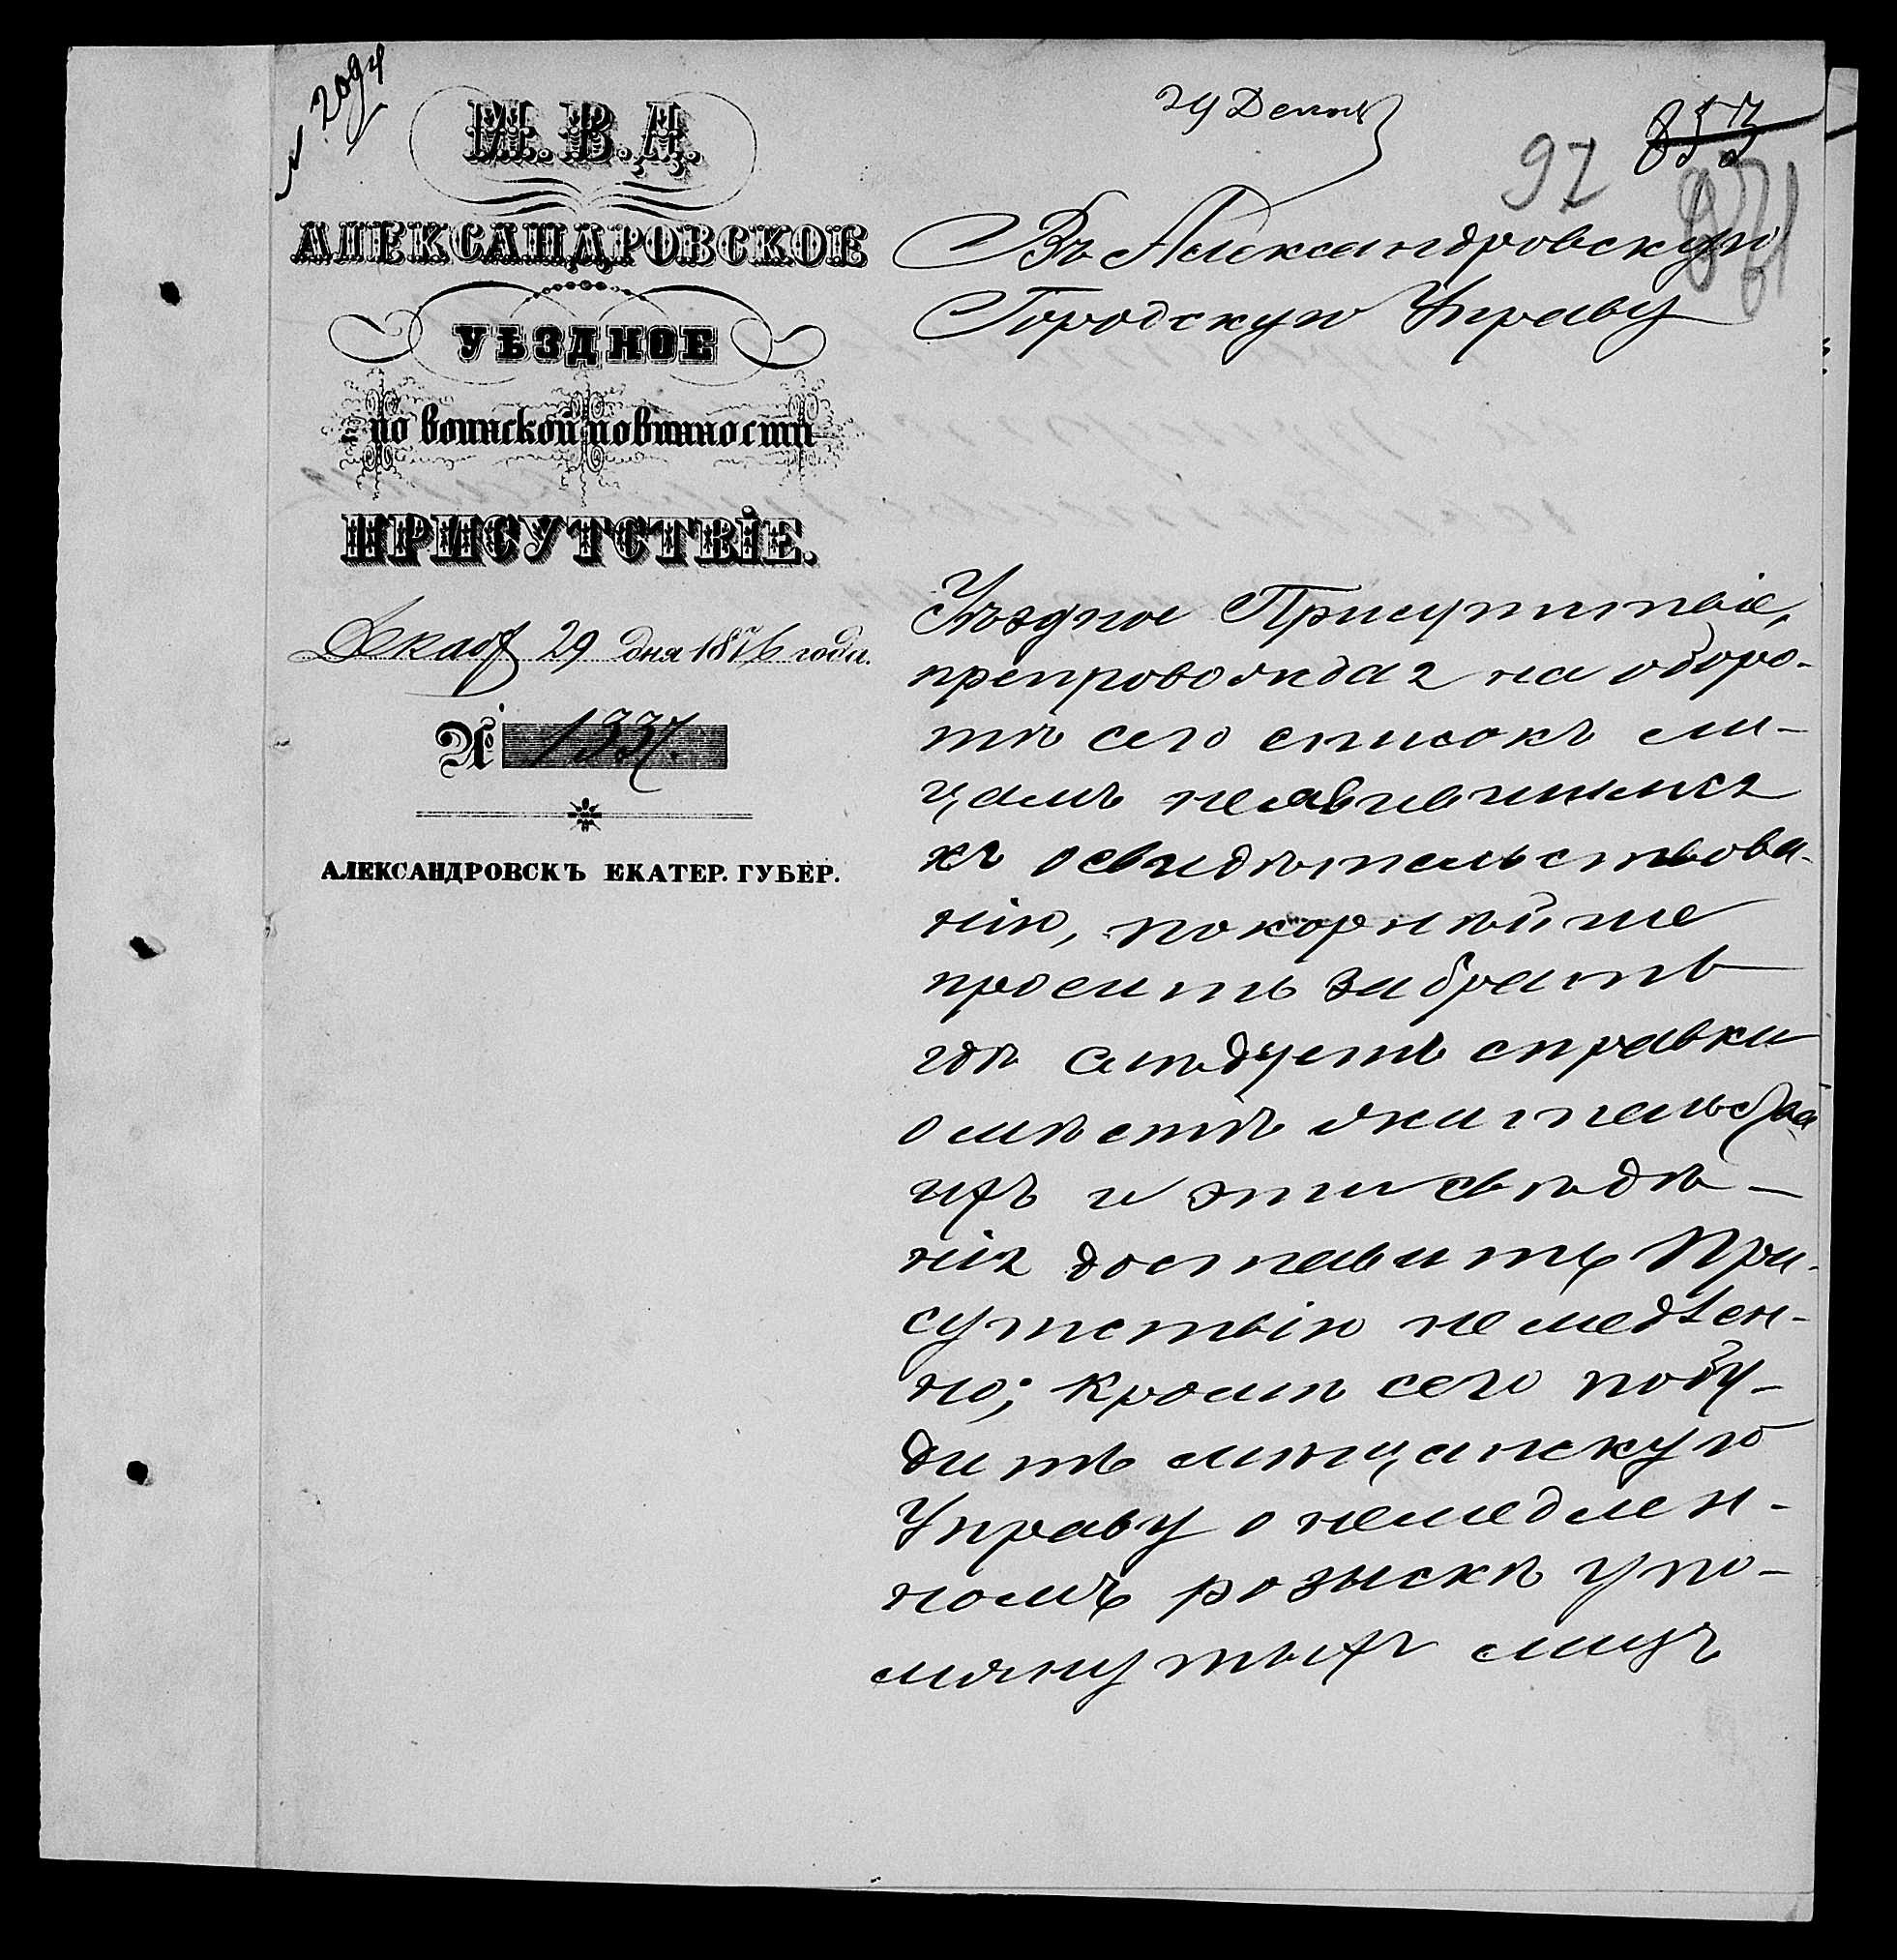 № 2094
М. В. Д.
АЛЕКСАНДРОВСКОЕ
УѢЗДНОЕ
по воинской повинности
ПРИСУТСТВІЕ.
Декаб 29 дня 1876 года.
№ 1337.
АЛЕКСАНДРОВСКЪ ЕКАТЕР. ГУБЕР.
29 Декаб
853
97
Въ Александровскую
Городскую Управу
Уѣздное Присутствіе,
препровождая на оборо-
тѣ сего списокъ ли-
цамъ неявившимся
къ освидѣтельствова-
нію, покорнѣйше
проситъ забрать
гдѣ слѣдуетъ справки
о мѣстѣ жительства
ихъ и эти свѣдѣ-
нія доставить При-
сутствію немедлен-
но; кромѣ сего побу-
дить мѣщанскую
Управу о немедлен-
номъ розыскѣ упо-
мянутыхъ лицъ